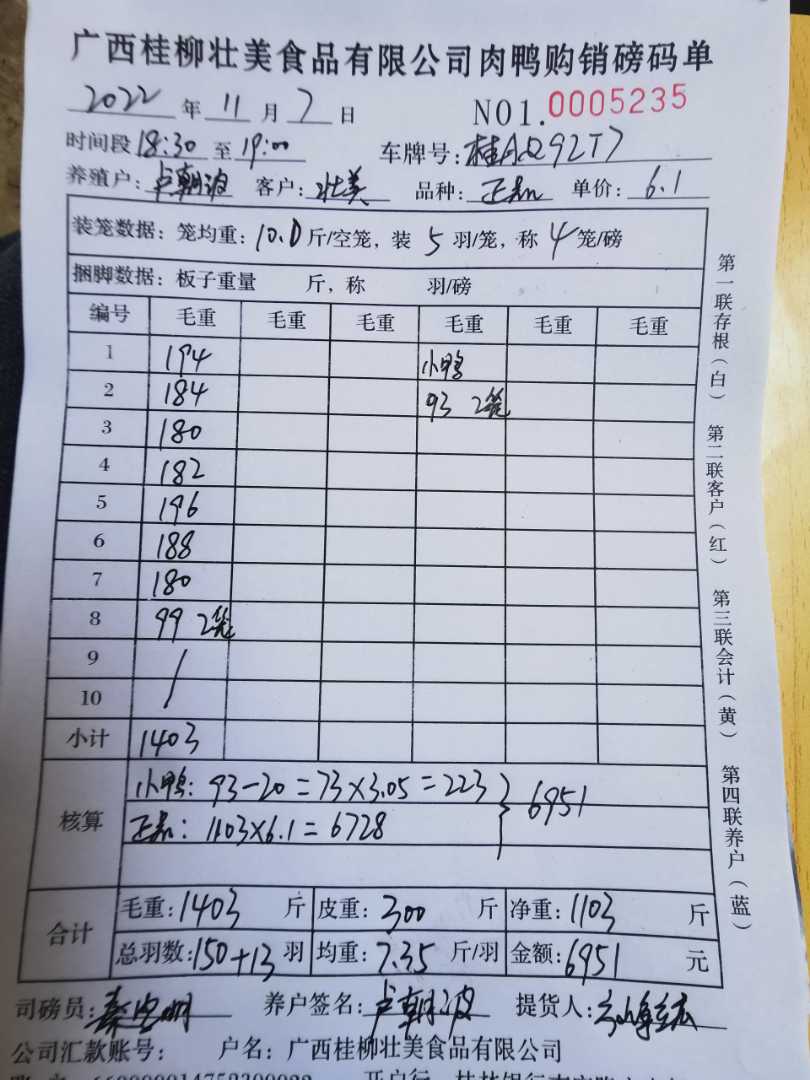 广西桂柳壮美食品有限公司肉鸭购销磅码单
2022 年 11 月 7 日 NO1.0005235
时间段 18:30 至 19:00 车牌号: 92T7
养殖户: 卢朝波 客户: 壮美 品种: 单价: 6.1
装笼数据: 笼均重: 10.0 斤/空笼, 装 5 羽/笼, 称 4 笼/磅
捆脚数据: 板子重量 斤, 称 羽/磅
编号 毛重 毛重 毛重 毛重 毛重 毛重
1 194 小鸭
2 184 93 2笼
3 180
4 182
5 196
6 188
7 180
8 99 2笼
9 /
10
小计 1403
核算 小鸭: 93-20=73×3.05=223 } 6951
: 1103×6.1=6728
合计 毛重: 1403 斤 皮重: 300 斤 净重: 1103 斤
总羽数: 150+13 羽 均重: 7.35 斤/羽 金额: 6951 元
司磅员: 养户签名: 卢朝波 提货人:
公司汇款账号: 户名: 广西桂柳壮美食品有限公司
第一联存根(白) 第二联客户(红) 第三联会计(黄) 第四联养户(蓝)